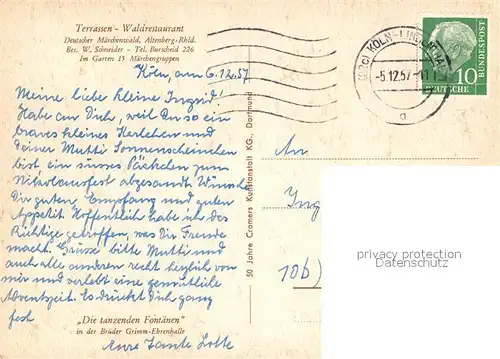 Terrassen - Waldrestaurant
Deutscher Märchenwald, Altenberg-Rhld.
Bes. W. Schneider - Tel. Burscheid 226
Im Garten 15 Märchengruppen
Köln, am 6.12.57
Meine liebe kleine Ingrid!
Habe an Dich, weil Du so ein
braves kleines Kerlchen und
deiner Mutti Sonnenscheinchen
bist ein süsses Päckchen zum
Nikolausfest abgesandt. Wünsche
Dir guten Empfang und guten
Appetit. Hoffentlich habe ich das
Richtige getroffen, was Dir Freude
macht. Grüsse bitte Mutti und
auch alle anderen recht herzlich von
mir und verlebt eine gemütliche
Adventszeit. Es drückt Dich ganz
fest
„Die tanzenden Fontänen"
in der Brüder Grimm-Ehrenhalle
Eure Tante Lotte
50 Jahre Cramers Kunstanstalt KG., Dortmund
KÖLN-LINDENTHAL
-5.12.57
a
10
DEUTSCHE
BUNDESPOST
An
Ing
10b)
privacy protection
watermark